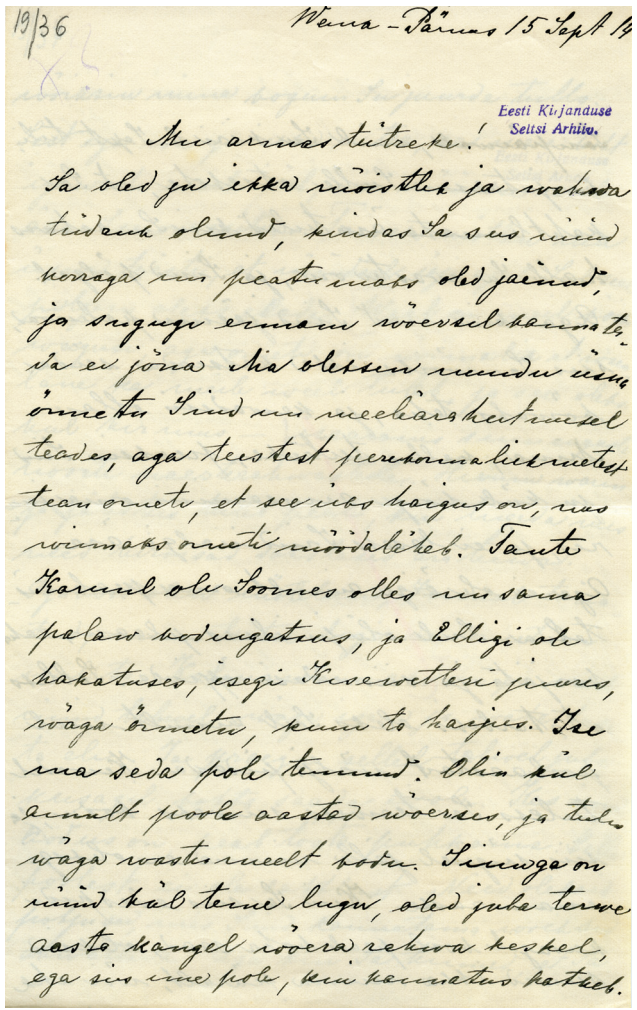 19/36
Wana-Pärnus 15 Sept 19
Eesti Kirjanduse
Seltsi Arhiiv.
Mu armas tütreke!
Sa oled ju ikka mõistlik ja wahwa
tüdruk olnud, kuidas Sa siis nüüd
korraga nii peatumaks oled jäänud,
ja sugugi ennam wõersil kannata-
da ei jõua Ma oleksin muudu üsna
õnnetu Sind nii meeleäraheitmisel
teades, aga teistest perekonnaliikmetest
tean ometi, et see üks haigus on, mis
wiimaks ometi möödaläheb. Tante
Karunl oli Soomes olles nii sama
palaw koduigatsus, ja Elligi oli
hakatuses, isegi Kisewetteri juures,
wäga õnnetu, kuni ta harjus. Ise
ma seda pole tunnud. Olin kül
ainult poole aastad wõerses, ja tulin
wäga wastumeelt kodu. Sinuga on
nüüd kül teine lugu, oled juba terwe
aasta kangel wõera rahwa keskel,
ega siis ime pole, kui kannatus katkeb.